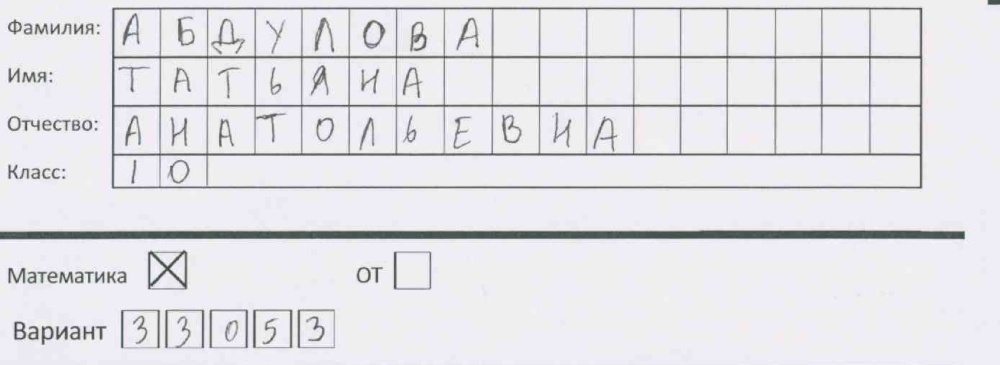 Фамилия: АБДУЛОВА
Имя: ТАТЬЯНА
Отчество: АНАТОЛЬЕВНА
Класс: 10
Математика ОТ
Вариант 33053